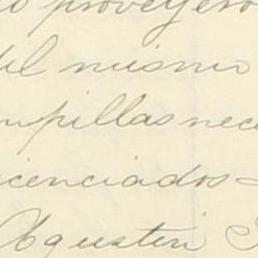 o proveyero
del mismo
mpillas nece
icenciados-
Agustin